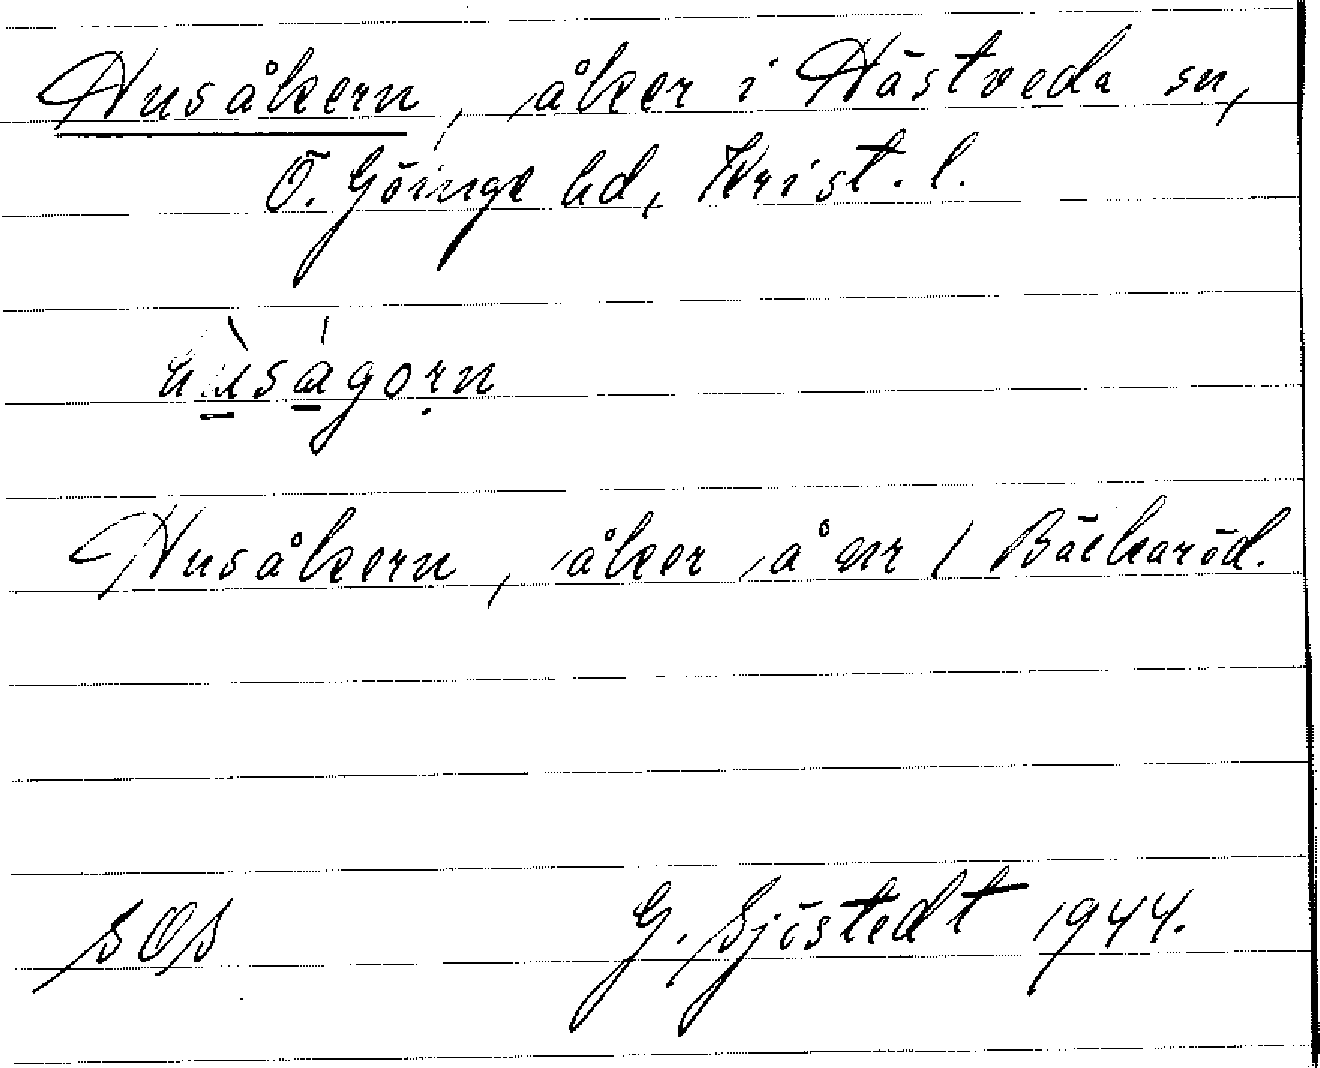 Husåkern, åker i Hästveda sn,
Ö. Göinge hd, Krist. l.
hùságorn
Husåkern, åker å nr 1 Bäckaröd.
SOS G. Sjöstedt 1944.